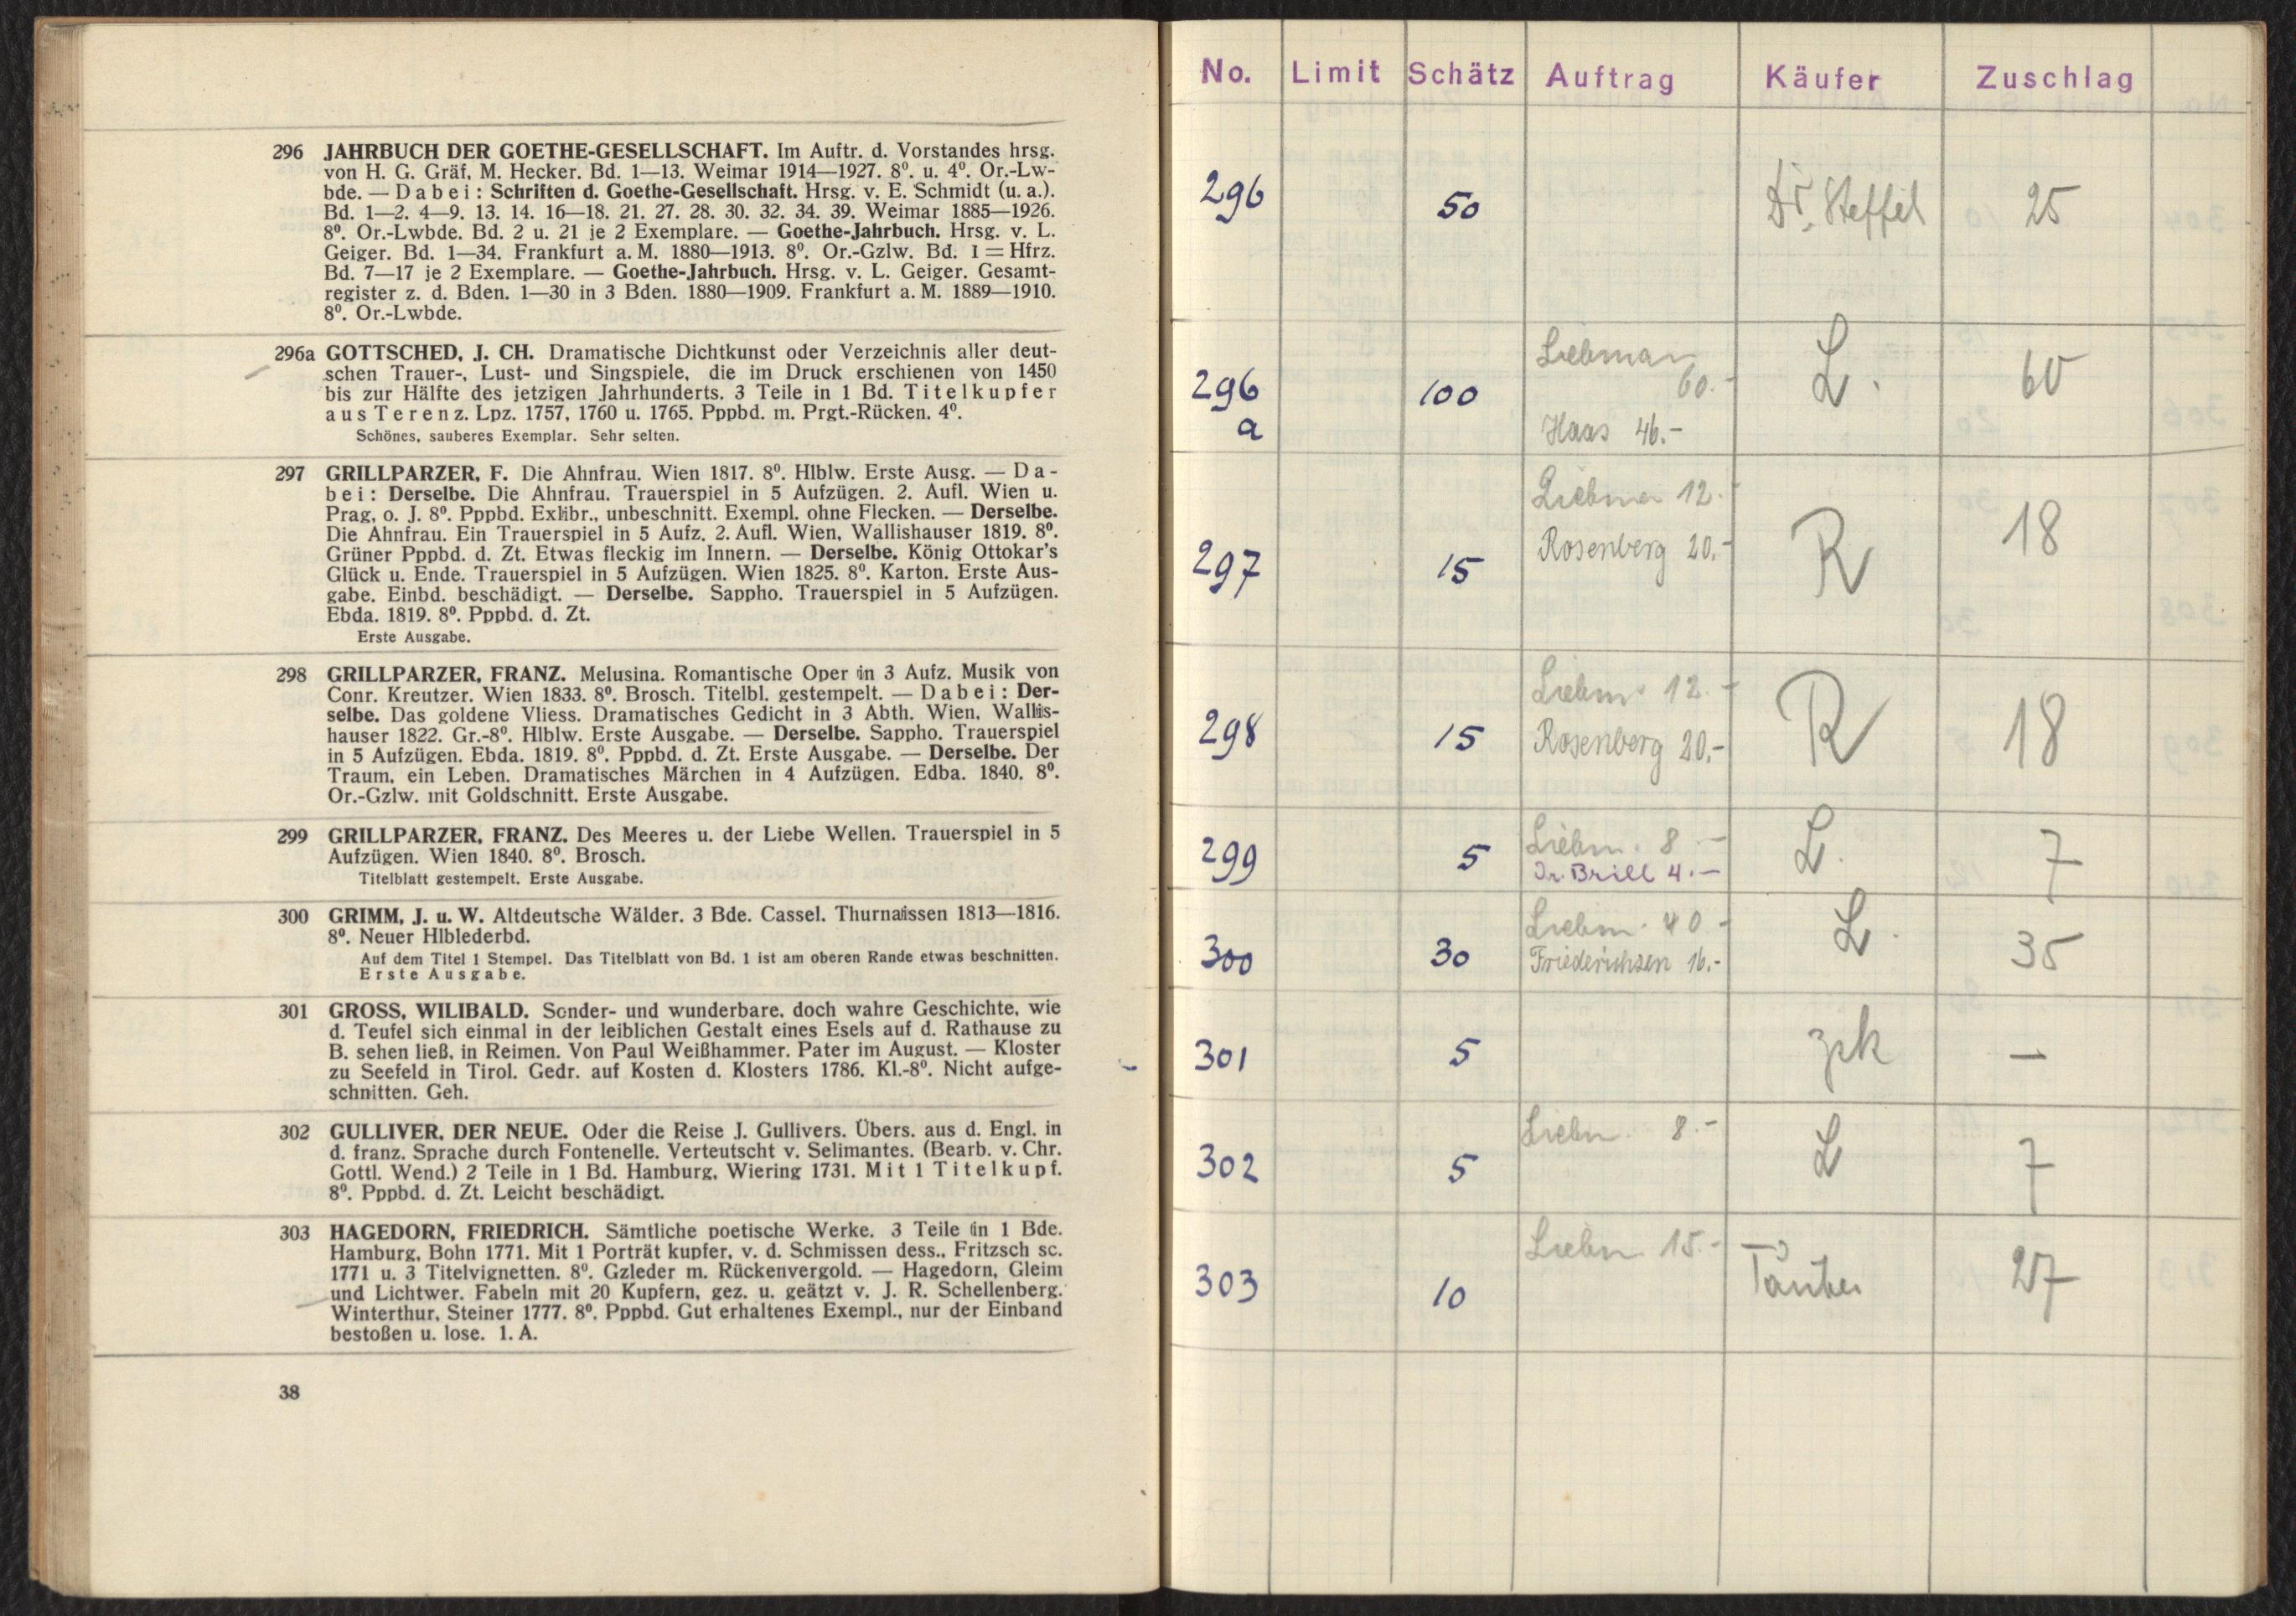 296 JAHRBUCH DER GOETHE-GESELLSCHAFT. Im Auftr. d. Vorstandes hrsg.
von H. G. Gräf, M. Hecker. Bd. 1—13. Weimar 1914—1927. 8⁰. u. 4⁰. Or.-Lw-
bde. — Dabei: Schriften d. Goethe-Gesellschaft. Hrsg. v. E. Schmidt (u. a.).
Bd. 1—2. 4—9. 13. 14. 16—18. 21. 27. 28. 30. 32. 34. 39. Weimar 1885—1926.
8⁰. Or.-Lwbde. Bd. 2 u. 21 je 2 Exemplare. — Goethe-Jahrbuch. Hrsg. v. L.
Geiger. Bd. 1—34. Frankfurt a. M. 1880—1913. 8⁰. Or.-Gzlw. Bd. I = Hfrz.
Bd. 7—17 je 2 Exemplare. — Goethe-Jahrbuch. Hrsg. v. L. Geiger. Gesamt-
register z. d. Bden. 1—30 in 3 Bden. 1880—1909. Frankfurt a. M. 1889—1910.
8⁰. Or.-Lwbde.
296a GOTTSCHED, J. CH. Dramatische Dichtkunst oder Verzeichnis aller deut-
schen Trauer-, Lust- und Singspiele, die im Druck erschienen von 1450
bis zur Hälfte des jetzigen Jahrhunderts. 3 Teile in 1 Bd. Titelkupfer
aus Terenz. Lpz. 1757, 1760 u. 1765. Pppbd. m. Prgt.-Rücken. 4⁰.
Schönes, sauberes Exemplar. Sehr selten.
297 GRILLPARZER, F. Die Ahnfrau. Wien 1817. 8⁰. Hlblw. Erste Ausg. — Da-
bei: Derselbe. Die Ahnfrau. Trauerspiel in 5 Aufzügen. 2. Aufl. Wien u.
Prag, o. J. 8⁰. Pppbd. Exlibr., unbeschnitt. Exempl. ohne Flecken. — Derselbe.
Die Ahnfrau. Ein Trauerspiel in 5 Aufz. 2. Aufl. Wien, Wallishauser 1819. 8⁰.
Grüner Pppbd. d. Zt. Etwas fleckig im Innern. — Derselbe. König Ottokar's
Glück u. Ende. Trauerspiel in 5 Aufzügen. Wien 1825. 8⁰. Karton. Erste Aus-
gabe. Einbd. beschädigt. — Derselbe. Sappho. Trauerspiel in 5 Aufzügen.
Ebda. 1819. 8⁰. Pppbd. d. Zt.
Erste Ausgabe.
298 GRILLPARZER, FRANZ. Melusina. Romantische Oper in 3 Aufz. Musik von
Conr. Kreutzer. Wien 1833. 8⁰. Brosch. Titelbl. gestempelt. — Dabei: Der-
selbe. Das goldene Vliess. Dramatisches Gedicht in 3 Abth. Wien, Wallis-
hauser 1822. Gr.-8⁰. Hlblw. Erste Ausgabe. — Derselbe. Sappho. Trauerspiel
in 5 Aufzügen. Ebda. 1819. 8⁰. Pppbd. d. Zt. Erste Ausgabe. — Derselbe. Der
Traum, ein Leben. Dramatisches Märchen in 4 Aufzügen. Edba. 1840. 8⁰.
Or.-Gzlw. mit Goldschnitt. Erste Ausgabe.
299 GRILLPARZER, FRANZ. Des Meeres u. der Liebe Wellen. Trauerspiel in 5
Aufzügen. Wien 1840. 8⁰. Brosch.
Titelblatt gestempelt. Erste Ausgabe.
300 GRIMM, J. u. W. Altdeutsche Wälder. 3 Bde. Cassel. Thurnaissen 1813—1816.
8⁰. Neuer Hlblederbd.
Auf dem Titel 1 Stempel. Das Titelblatt von Bd. 1 ist am oberen Rande etwas beschnitten.
Erste Ausgabe.
301 GROSS, WILIBALD. Sonder- und wunderbare, doch wahre Geschichte, wie
d. Teufel sich einmal in der leiblichen Gestalt eines Esels auf d. Rathause zu
B. sehen ließ, in Reimen. Von Paul Weißhammer. Pater im August. — Kloster
zu Seefeld in Tirol. Gedr. auf Kosten d. Klosters 1786. Kl.-8⁰. Nicht aufge-
schnitten. Geh.
302 GULLIVER, DER NEUE. Oder die Reise J. Gullivers. Übers. aus d. Engl. in
d. franz. Sprache durch Fontenelle. Verteutscht v. Selimantes. (Bearb. v. Chr.
Gottl. Wend.) 2 Teile in 1 Bd. Hamburg, Wiering 1731. Mit 1 Titelkupf.
8⁰. Pppbd. d. Zt. Leicht beschädigt.
303 HAGEDORN, FRIEDRICH. Sämtliche poetische Werke. 3 Teile in 1 Bde.
Hamburg, Bohn 1771. Mit 1 Porträt kupfer, v. d. Schmissen dess., Fritzsch sc.
1771 u. 3 Titelvignetten. 8⁰. Gzleder m. Rückenvergold. — Hagedorn, Gleim
und Lichtwer. Fabeln mit 20 Kupfern, gez. u. geätzt v. J. R. Schellenberg.
Winterthur, Steiner 1777. 8⁰. Pppbd. Gut erhaltenes Exempl., nur der Einband
bestoßen u. lose. 1. A.
38
No. Limit Schätz Auftrag Käufer Zuschlag
296 50 Dr. Steffel 25
Liebman 60.-
296 a 100 L. 60
Haas 46.-
Liebman 12.-
297 15 Rosenberg 20.- R 18
Liebm. 12.-
298 15 Rosenberg 20.- R 18
Liebm. 8.-
299 5 Dr. Brill 4.- L. 7
Liebm. 40.-
300 30 Friederichsen 16.- L. 35
301 5 zrk —
Liebm. 8.-
302 5 L 7
Liebm 15.-
303 10 Täuber 27